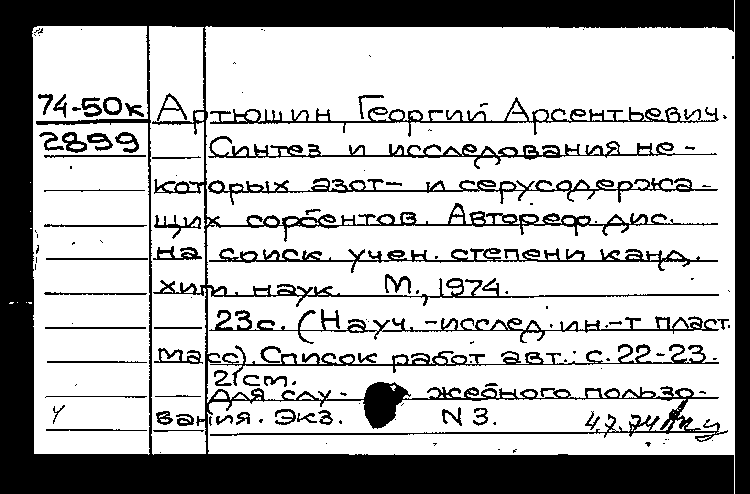 74-50к Артюшин, Георгий Арсентьевич.
2899 Синтез и исследования не-
которых азот- и серусодержа-
щих сорбентов. Автореф. дис.
на соиск. учен. степени канд.
хим. наук. М., 1974.
23с. (Науч.-исслед. ин.-т пласт.
масс). Список работ авт.: с. 22-23.
21см.
Для слу- жебного пользо-
вания. Экз. N 3.
4.7.74